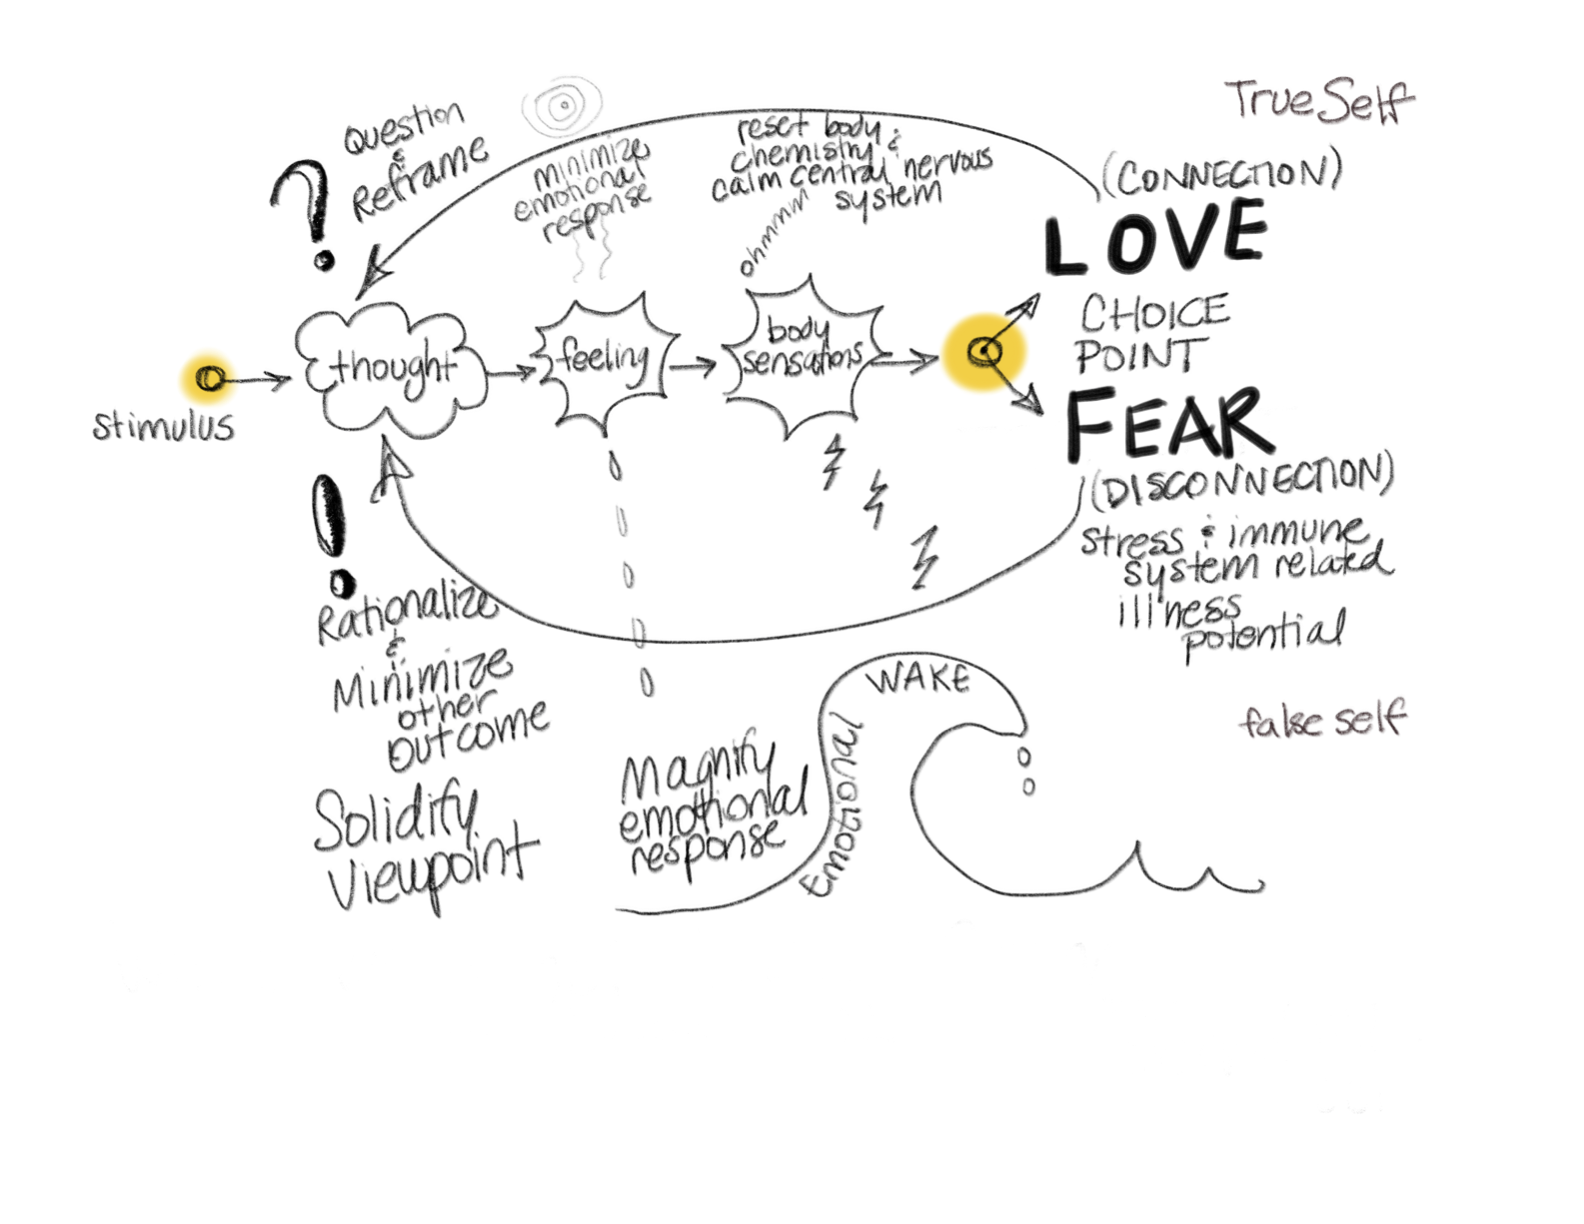 True Self
Question
&
Reframe
minimize
emotional
response
reset body
chemistry &
calm central nervous
system
ohmmm
(CONNECTION)
LOVE
CHOICE
POINT
FEAR
(DISCONNECTION)
stress & immune
system related
illness
potential
stimulus
thought
feeling
body
sensations
Rationalize
&
Minimize
other
outcome
Solidify
Viewpoint
Magnify
emotional
response
Emotional
WAKE
false self